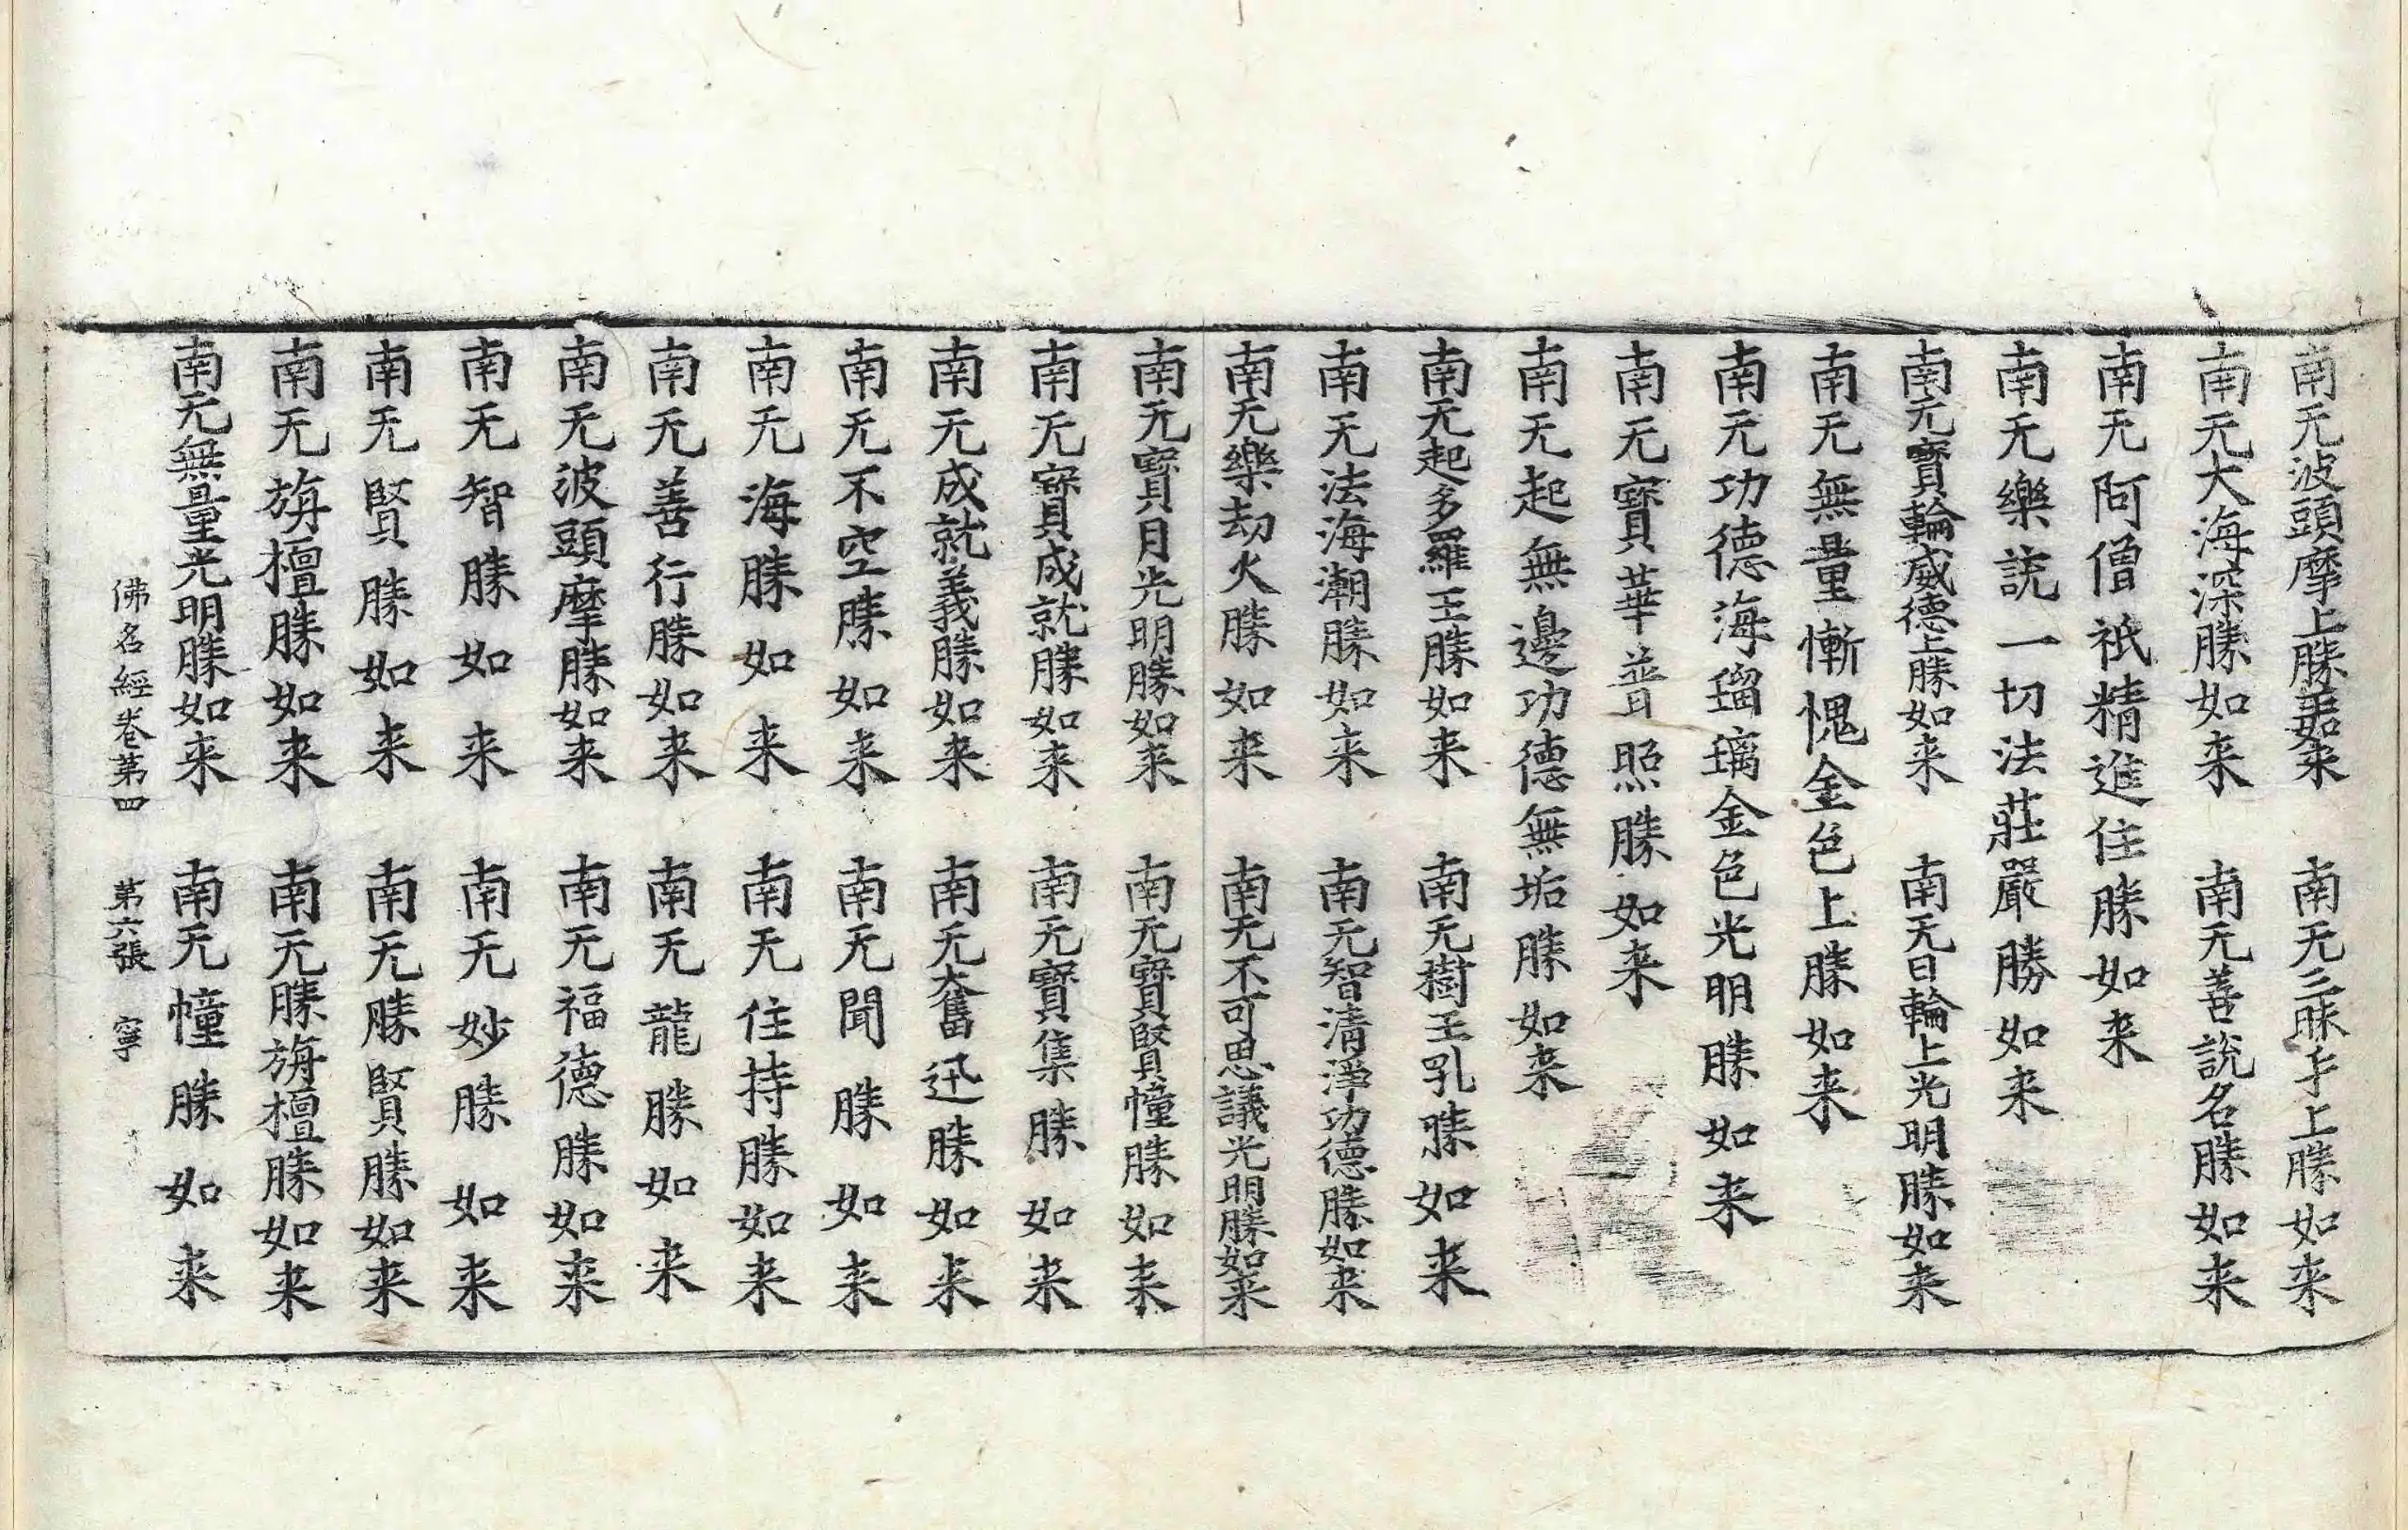 南无波頭摩上勝如来 南无三昧手上勝如来
南无大海深勝如来 南无善說名勝如来
南无阿僧祇精進住勝如来
南无樂說一切法莊嚴勝如来
南无寶輪威德上勝如来 南无日輪上光明勝如来
南无無量慚愧金色上勝如来
南无功德海瑠璃金色光明勝如来
南无寶華普照勝如来
南无起無邊功德無垢勝如来
南无起多羅王勝如来 南无樹王乳勝如来
南无法海潮勝如来 南无智清淨功德勝如来
南无樂劫火勝如来 南无不可思議光明勝如来
南无寶月光明勝如来 南无寶賢幢勝如来
南无寶成就勝如来 南无寶集勝如来
南无成就義勝如来 南无奮迅勝如来
南无不空勝如来 南无聞勝如来
南无海勝如来 南无住持勝如来
南无善行勝如来 南无龍勝如来
南无波頭摩勝如来 南无福德勝如来
南无智勝如来 南无妙勝如来
南无賢勝如来 南无勝賢勝如来
南无旃檀勝如来 南无勝旃檀勝如来
南无無量光明勝如来 南无幢勝如来
佛名經卷苐四 苐六張 寧